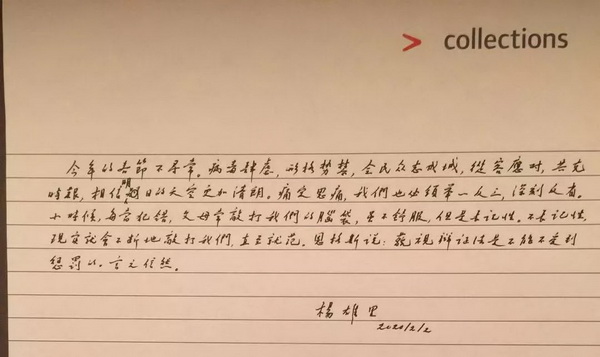 > collections
今年的春節不尋常。病毒肆虐,形格勢禁,全民众志成城,從容應對,共克
時艱,相信明日的天空更加清朗。痛定思痛,我們也必須舉一反三,深刻反省。
小時候,每當犯錯,父母常敲打我們的腦袋,虽不舒服,但是長記性。不長記性,
現实就会不断地敲打我們,直至就范。恩格斯说:藐視辯证法是不能不受到
惩罰的。言之信然。
楊雄里
2020/2/2